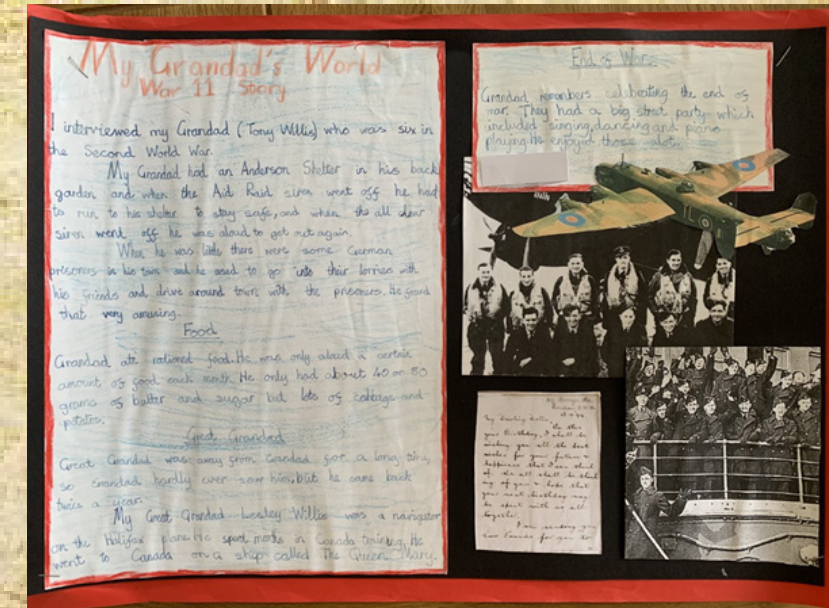 My Grandad's World
War 11 Story
I interviewed my Grandad (Tony Willis) who was six in
the Second World War.
My Grandad had an Anderson Shelter in his back
garden and when the Aid Raid siren went off he had
to run to his shelter to stay safe, and when the all clear
siren went off he was aloud to get out again.
When he was little there were some German
prisoners in his town and he used to go into their lorries with
his friends and drive around town with the prisoners. He found
that very amusing.
Food
Grandad ate rationed food. He was only aloud a certain
amount of food each month. He only had about 40 or 80
grams of butter and sugar but lots of cabbage and
potatoes.
Great Grandad
Great Grandad was away from Grandad for a long time,
so Grandad hardly ever saw him, but he came back
twice a year.
My Great Grandad Lesley Willis was a navigator
on the Halifax plane. He spent months in Canada training. He
went to Canada on a ship called The Queen Mary.
End of War
Grandad remembers celebrating the end of
war. They had a big street party which
included singing, dancing and piano
playing. He enjoyed those alot.
L
My Darling
On this
your Birthday, I shall be
wishing you all the best
wishes for your future &
happiness that I can think
of. We all shall be think
ing of you & hope that
you next birthday may
be spent with us all
together.
I am sending you
for you to